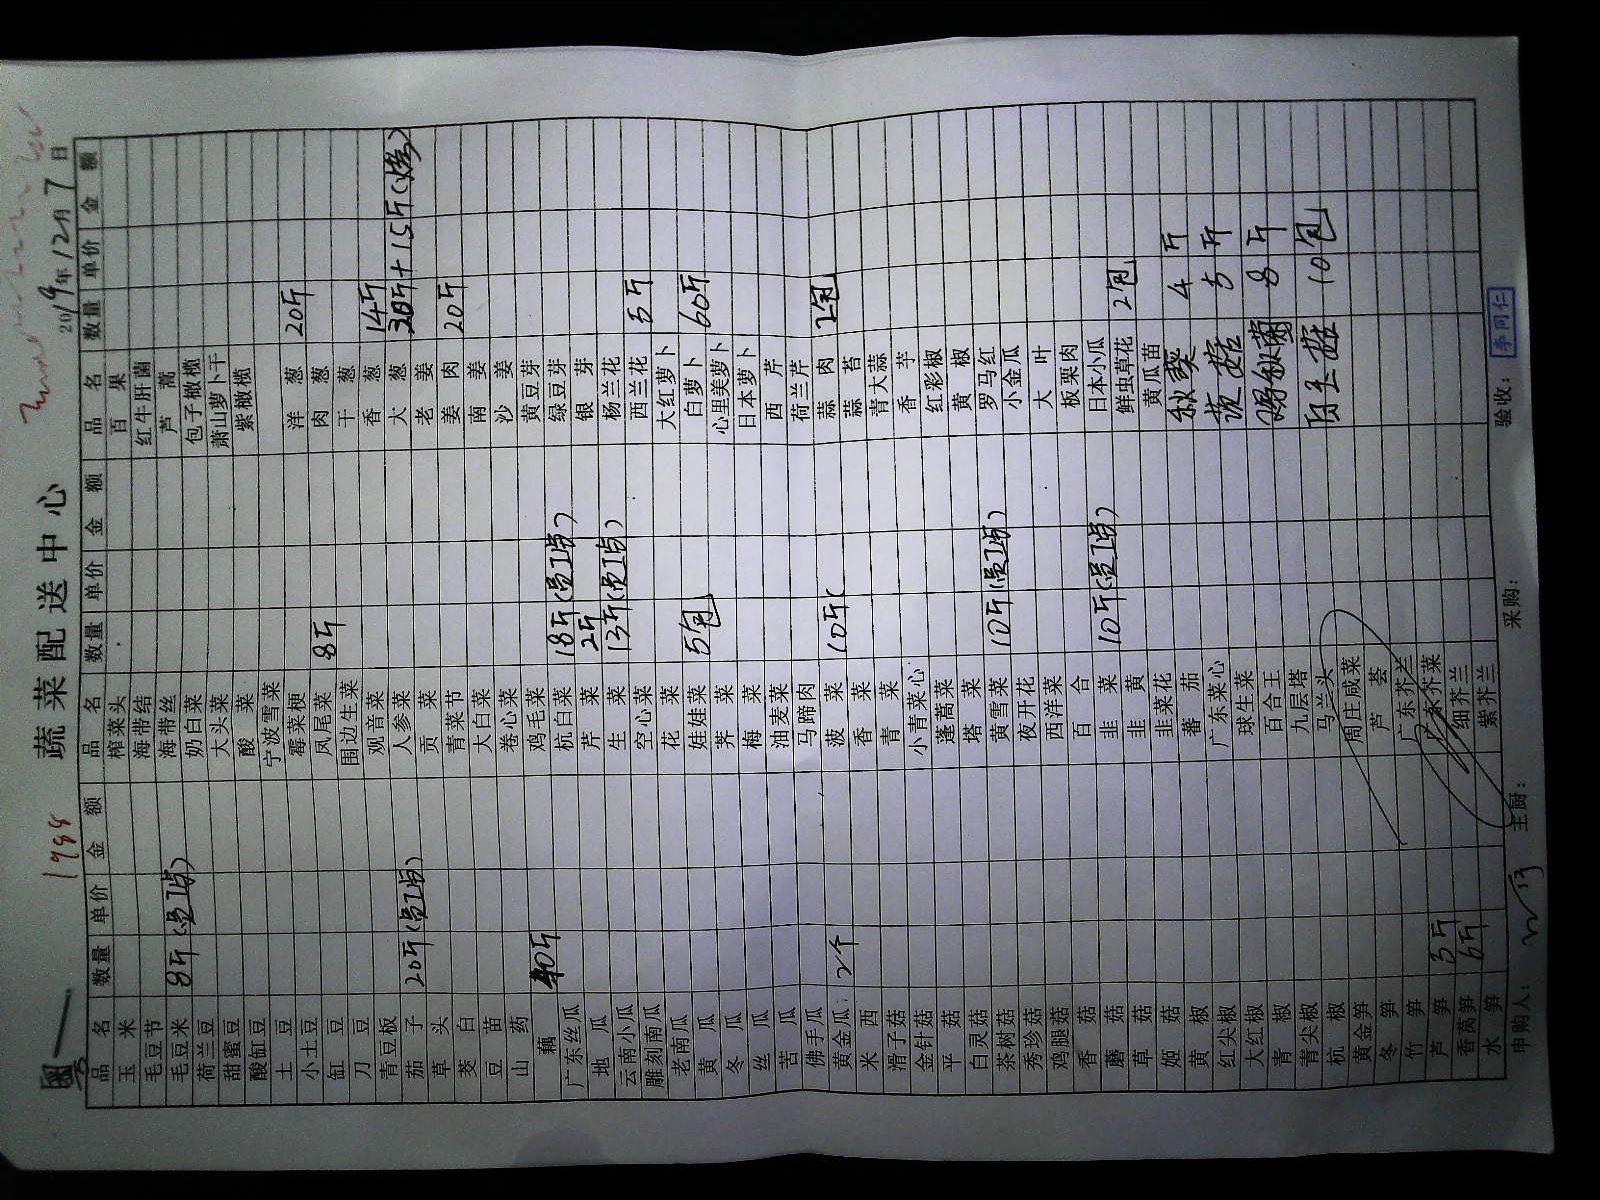 1988 蔬菜配送中心
2019年12月7日
品名 数量 单价 金额 品名 数量 单价 金额 品名 数量 单价 金额
玉米 榨菜头 百果
毛豆节 海带结 红牛肝菌
毛豆米 8斤(员工点) 海带丝 芦蒿
荷兰豆 奶白菜 包子橄榄
甜蜜豆 大头菜 萧山萝卜干
酸缸豆 酸菜 紫橄榄
土豆 宁波雪菜
小土豆 霉菜梗 洋葱 20斤
缸豆 凤尾菜 8斤 肉葱
刀豆 围边生菜 干葱
青豆板 观音菜 香葱 14斤
茄子 20斤(员工点) 人参菜 大葱 30斤+15斤(烧)
草头 贡菜 老姜
茭白 青菜节 姜肉 20斤
豆苗 大白菜 南姜
山药 卷心菜 沙姜
藕 40斤 鸡毛菜 黄豆芽
广东丝瓜 杭白菜 18斤(员工点) 绿豆芽
地瓜 芹菜 2斤 银芽
云南小瓜 生菜 13斤(员工点) 杨兰花
雕刻南瓜 空心菜 西兰花 5斤
老南瓜 花菜 大红萝卜
黄瓜 娃娃菜 5包 白萝卜 60斤
冬瓜 荠菜 心里美萝卜
丝瓜 梅菜 日本萝卜
苦瓜 油麦菜 西芹
佛手瓜 马蹄肉 荷兰芹
黄金瓜 2个 菠菜 10斤( 蒜肉 2包
米西 香菜 蒜苔
滑子菇 青菜 青大蒜
金针菇 小青菜心 香芋
平菇 蓬蒿菜 红彩椒
白灵菇 塔菜 黄椒
茶树菇 黄雪菜 10斤(员工点) 罗马红
秀珍菇 夜开花 小金瓜
鸡腿菇 西洋菜 大叶
香菇 百合 板栗肉
蘑菇 韭菜 10斤(员工点) 日本小瓜
草菇 韭黄 鲜虫草花 2包
姬菇 韭菜花 黄瓜苗
黄椒 蕃茄 秋葵 4斤
红尖椒 广东菜心 茨菇 5斤
大红椒 球生菜
青椒 百合王 8斤
青尖椒 九层塔
杭椒 马兰头 白玉菇 10包
黄金笋 周庄咸菜
冬笋 芦荟
竹笋 广东芥兰
芦笋 5斤 广东芥菜
香莴笋 6斤 细芥兰
水笋 紫芥兰
申购人: 主厨: 采购: 验收: 李同仁